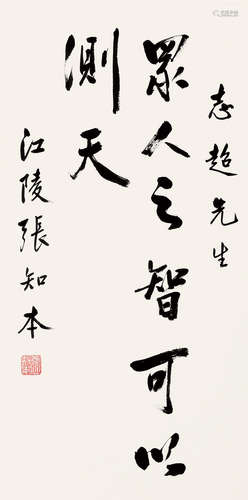 志超先生
眾人之智可以
測天
江陵張知本